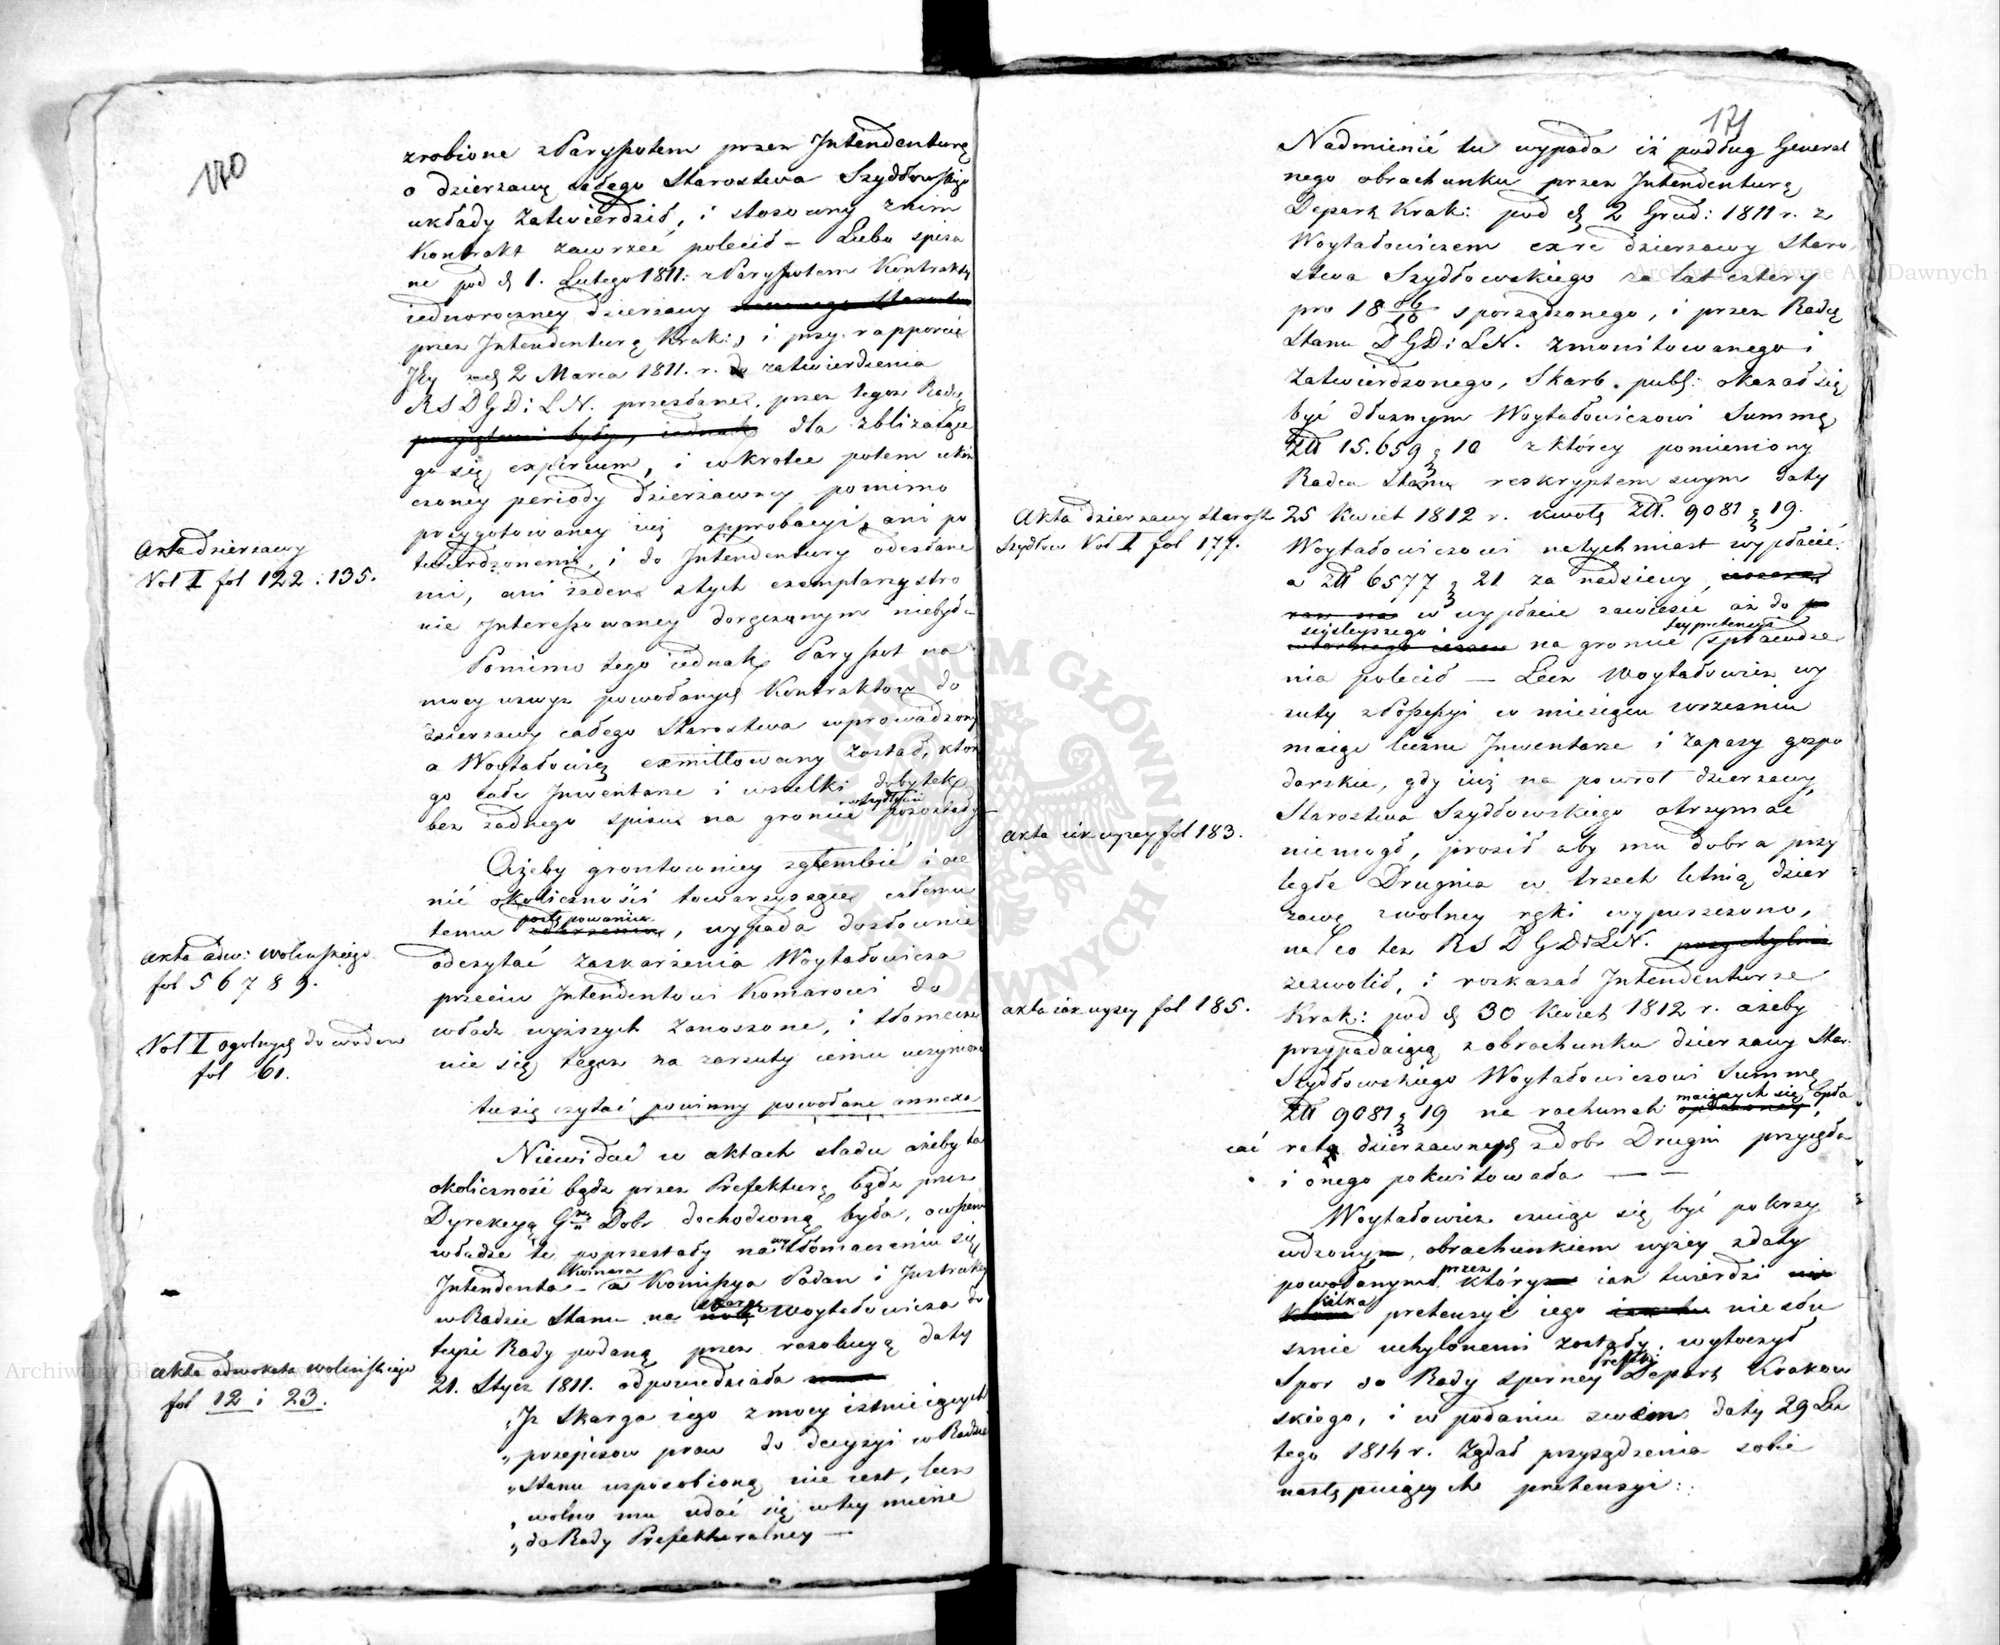 170
zrobione z Paryssotem przez Intendenturę
o dzierzawę całego Starostwa Szydłowskiego
układy zatwierdził, i stosowny z nim
Kontrakt zawrzeć polecił – Lubo spisa
ne pod d. 1. Lutego 1811: z Paryssotem Kontrakty
iednoroczney dzierzawy
przez Intendenturę Krak:, i przy rapporcie
Jey z d. 2 Marca 1811. r. do zatwierdzenia
RSDGDiLN. przesłane, przez tegoż Radcę
dla zbliżaiące
go się expirum, i wkrotce potem ukoń
czoney periody dzierżawney pomimo
przygotowaney iuż approbacyi, ani po
twierdzonemi, i do Intendentury odesłane
mi, ani żaden z tych exemplarzy stro
nie Interessowaney doręczonym niebył.
Akta dzierzawy
Vol I fol 122 : 135.
Pomimo tego iednak Paryssot na
mocy wzwyż powołanych Kontraktow do
dzierzawy całego Starostwa wprowadzony
a Woytałowicz exmittowany został, ktore
go całe Inwentarze i wszelki dobytek
bez żadnego spisu na gruncie w Szydłowie pozostały –
Ażeby grontowniey zgłembić i oce
nić okoliczności towarzyszące całemu
temu postępowaniu, wypada dosłownie
odczytać zaskarżenia Woytałowicza
przeciw Intendentowi Komarowi do
władz wyższych zanoszone, i tłomacze
nie się tegoż na zarzuty iemu uczynione
Akta adw: Wolinskiego
fol 5 6 7 8 9.
Vol I ogolnych dowodow
fol 61.
tu się czytać powinny powołane annexa
Niewidać w aktach sladu ażeby ta
okoliczność bądź przez Prefekturę bądź przez
Dyrekcyą Gną Dobr dochodzoną była, owszem
władze te poprzestały na wytłomaczeniu się
Intendenta Komara – a Komissya Podan i Instrukcyi
w Radzie Stanu na skargę Woytałowicza do
teyże Rady podaną przez rezolucyą daty
21. Stycz 1811. odpowiedziała
„Iż Skarga iego z mocy istnieiących
„przepisow praw do decyzyi w Radzie
„Stanu usposobioną nie iest, lecz
„wolno mu udać się w tey mierze
„do Rady Prefekturalney –
Akta adwokata Wolinskiego
fol 12 i 23.
171
Nadmienić tu wypada iż podług General
nego obrachunku przez Intendenturę
Depart. Krak: pod d. 2 Grud: 1811 r. z
Woytałowiczem ex re dzierzawy Staro
stwa Szydłowskiego za lat cztery
pro 18 06/10 sporządzonego, i przez Radcę
Stanu DGDiLN. zmonitowanego i
zatwierdzonego, Skarb publ: okazał się
być dłużnym Woytałowiczowi Summę
Złł 15.659 g 10 z ktorey pomieniony
Radca Stanu reskryptem swym daty
25 Kwiet 1812 r. kwotę Złł. 9081 g 19.
Woytałowiczowi natychmiast wypłacić
a złł 6577 g 21 za nadsiewy,
w wypłacie zawiesić aż do
scisleyszego na gruncie tey pretensyi sprawdze
nia polecił – Lecz Woytałowicz wy
zuty z Possessyi w miesiącu wrzesniu
maiąc liczne Inwentarze i zapasy gospo
darskie, gdy iuż na powrot dzierzawy
Starostwa Szydłowskiego otrzymać
niemogł, prosił aby mu dobra przy
ległe Drugnia w trzech letnią dzier
zawę z wolney ręki wypuszczono,
na co też RSDGDiLN.
zezwolił, i roskazał Intendenturze
Krak: pod d. 30 Kwiet 1812 r. ażeby
przypadaiącą z obrachunku dzierzawy Star.
Szydłowskiego Woytałowiczowi Summę
Złł 9081 g 19 na rachunek maiących się opła
cać rat dzierzawnych z dobr Drugni przyięła
i onego pokwitowała — —
Akta dzierzawy Starost
Szydłow Vol I fol 177.
akta iak wyzey fol 183.
akta iak wyzey fol 185.
Woytałowicz czuiąc się być pokrzy
wdzony obrachunkiem wyżey z daty
powołanym, przez który iak twierdzi
kilka pretensyi iego niesłu
sznie uchylonemi zostały, wytoczył
Spor do Rady sporney Prefktu: Depart. Krakow
skiego, i w podaniu swoim daty 29 Lu
tego 1814 r. żądał przysądzenia sobie
następuiących pretensyi: